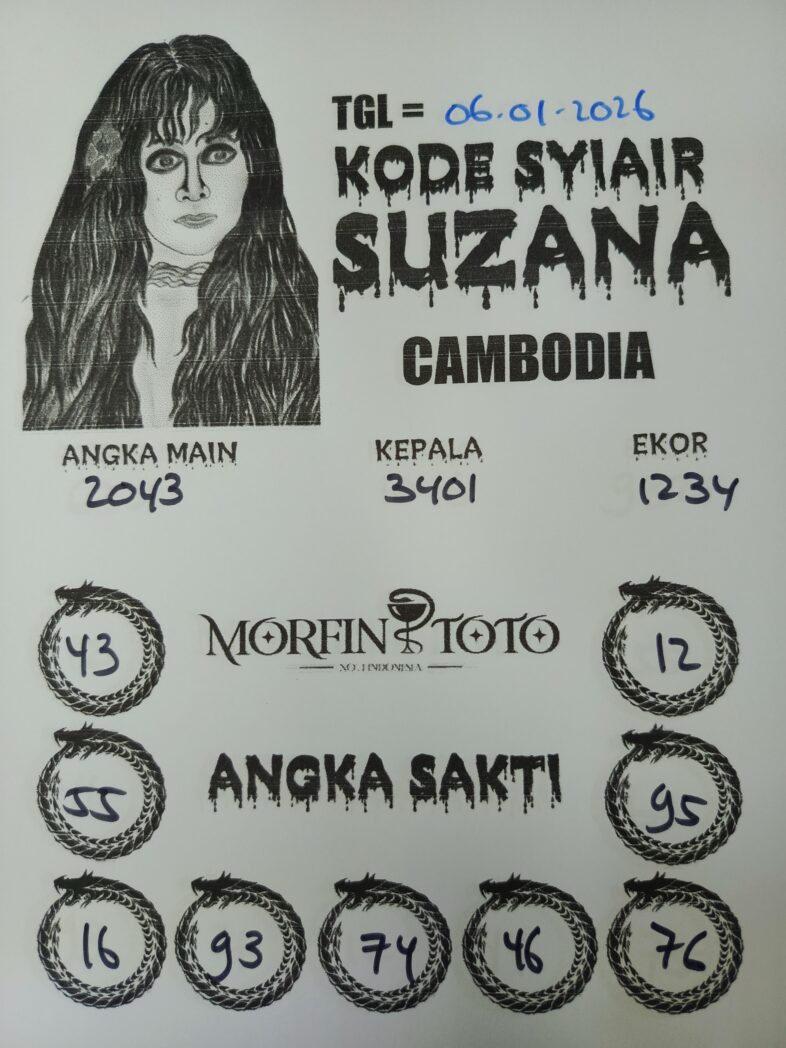 TGL = 06.01.2026
KODE SYIAIR
SUZANA
CAMBODIA
ANGKA MAIN KEPALA EKOR
2043 3401 1234
43 MORFIN TOTO 12
NO.1 INDONESIA
55 ANGKA SAKTI 95
16 93 74 46 76